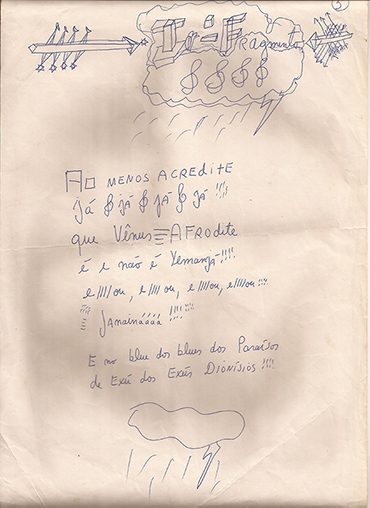 5
Fragmento
AO MENOS ACREDITE
já já já já !!!
que Vênus AFRODITE
é e não é Yemanjá !!!!
e////ou, e////ou, e////ou, e////ou !!!
Janaináááá !!!!
E no blue dos blues dos Paraísos
de Exú dos Exús DIONÍSIOS !!!